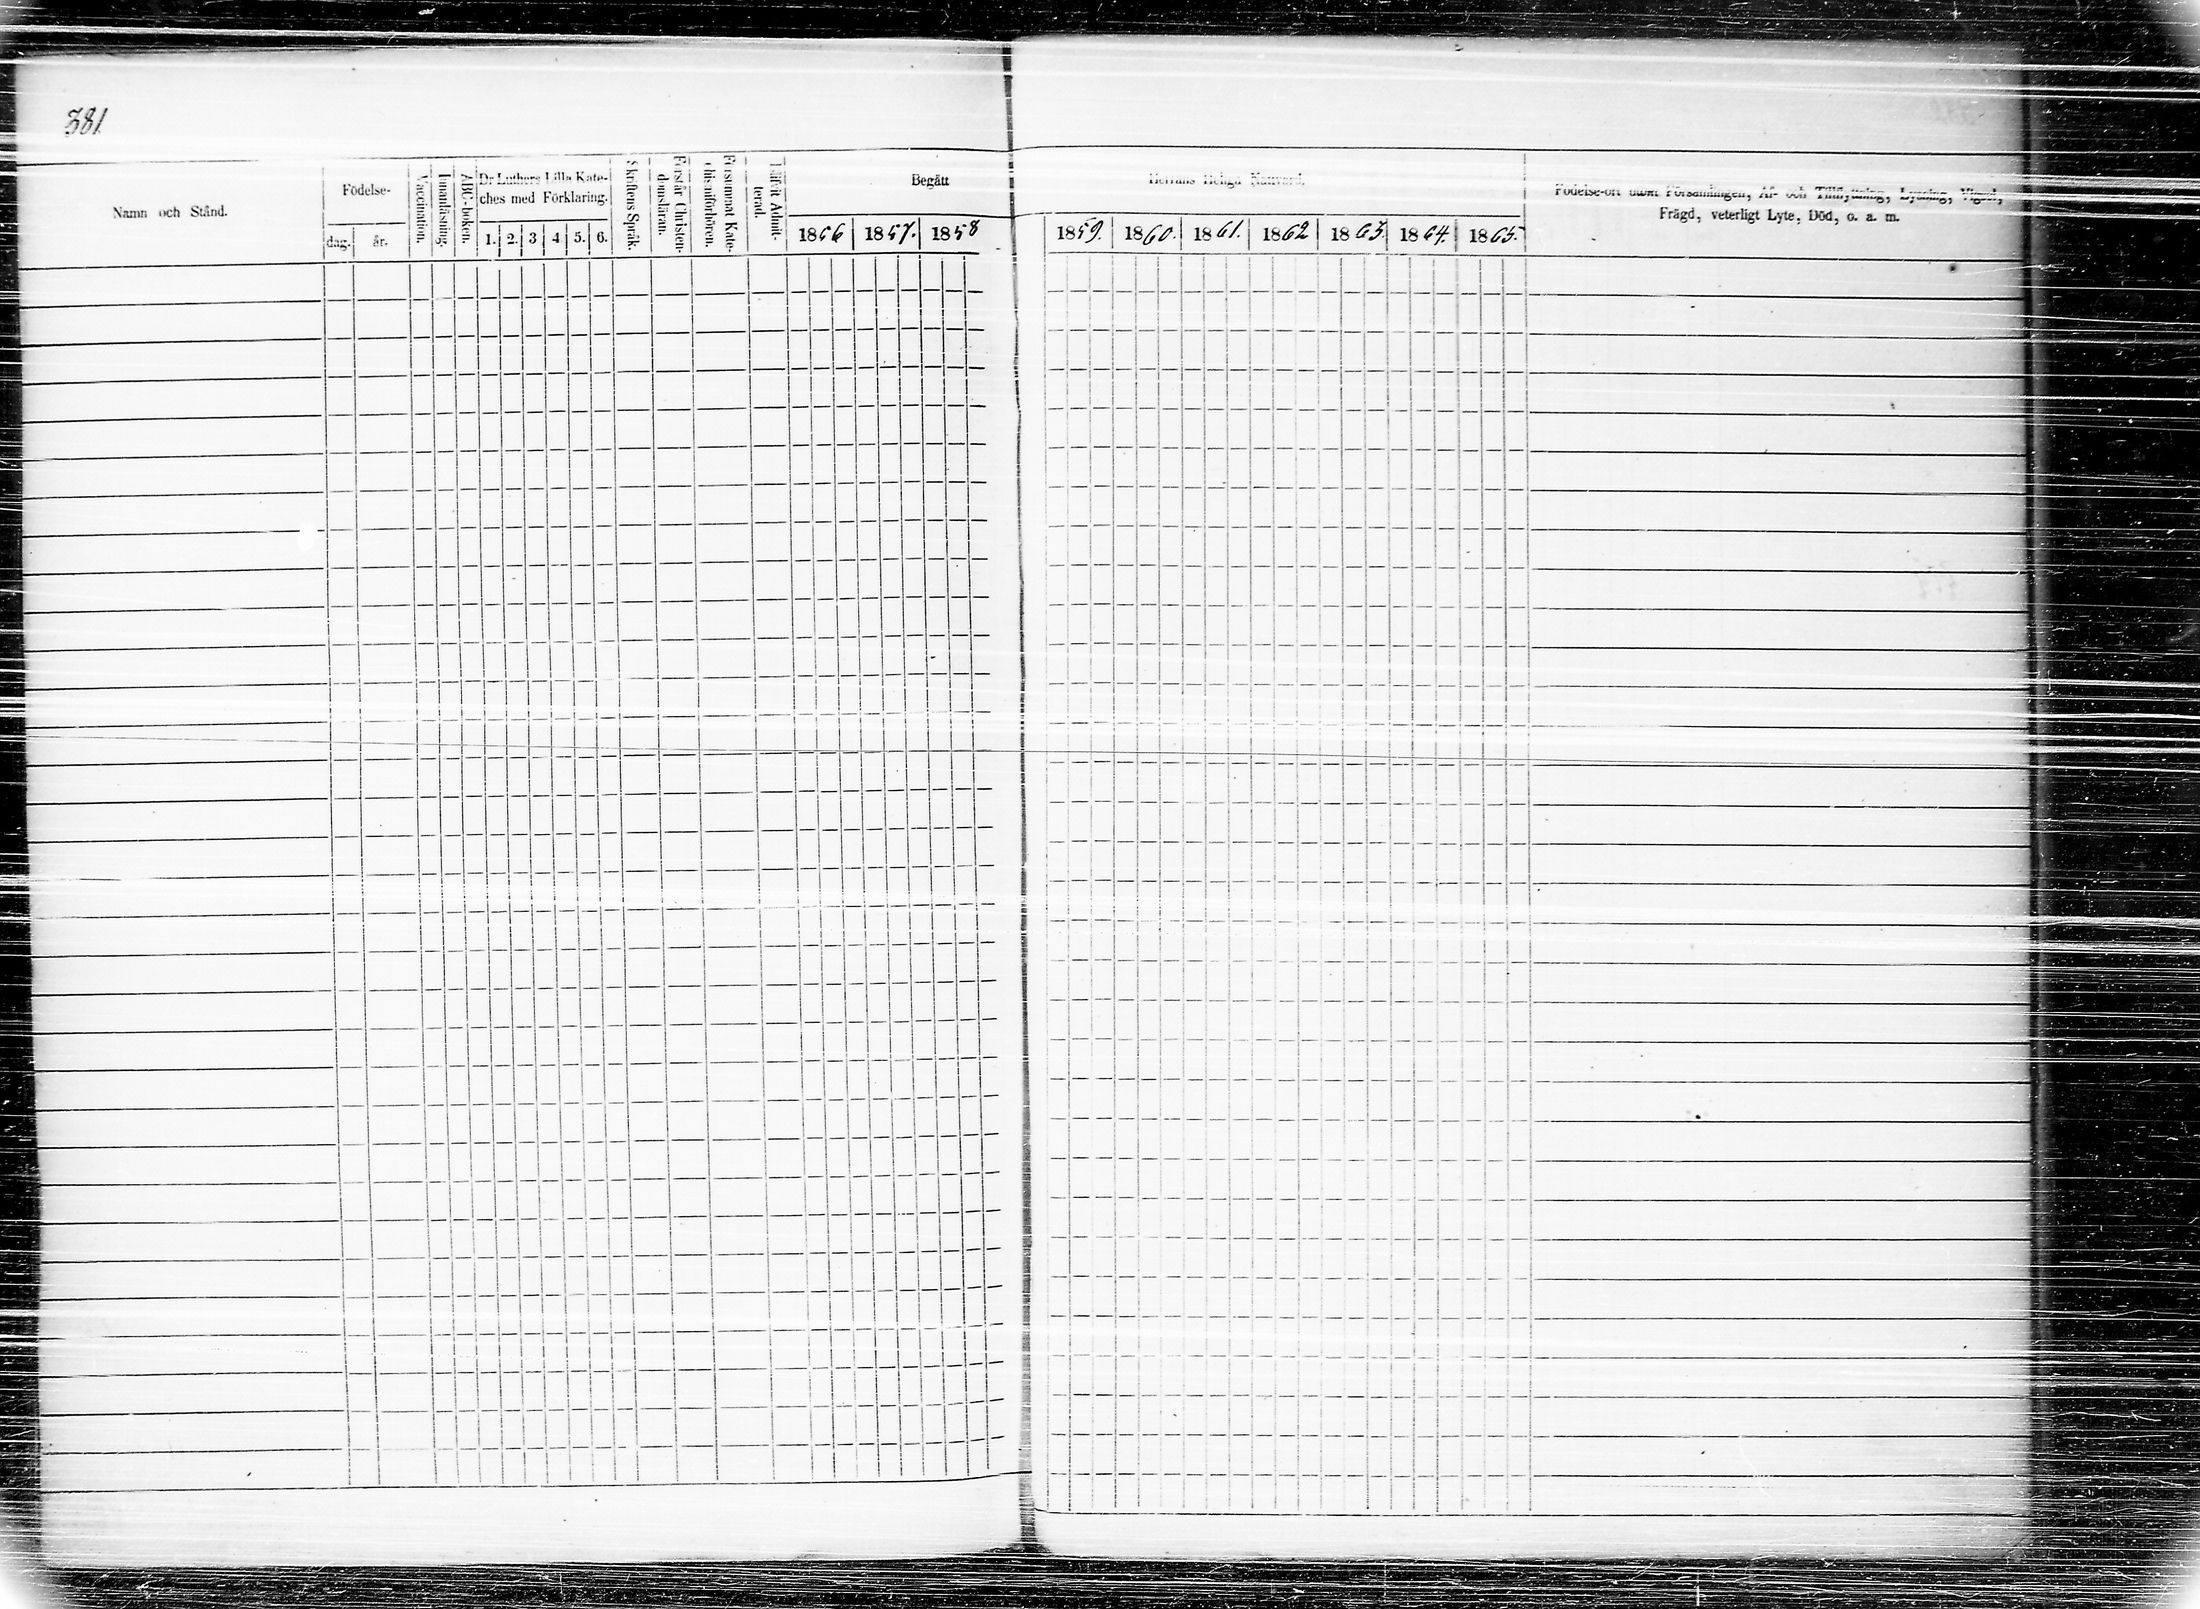 381.
Namn och Stånd.
Födelse-
dag. år.
Vaccination.
Innanläsning.
ABC-boken.
Dr Luthers Lilla Kate-
ches med Förklaring.
1. 2. 3 4 5. 6.
Skriftens Språk.
Förstår Christen-
domsläran.
Försummat Kate-
chismiförhören.
Blifvit Admit-
terad.
Begått
1856 1857. 1858
Herrans Heliga Nattvard.
1859. 1860. 1861. 1862 1863. 1864. 1865.
Födelse-ort utom Församlingen, Af- och Tillflyttning, Lysning, Vigsel,
Frägd, veterligt Lyte, Död, o. a. m.